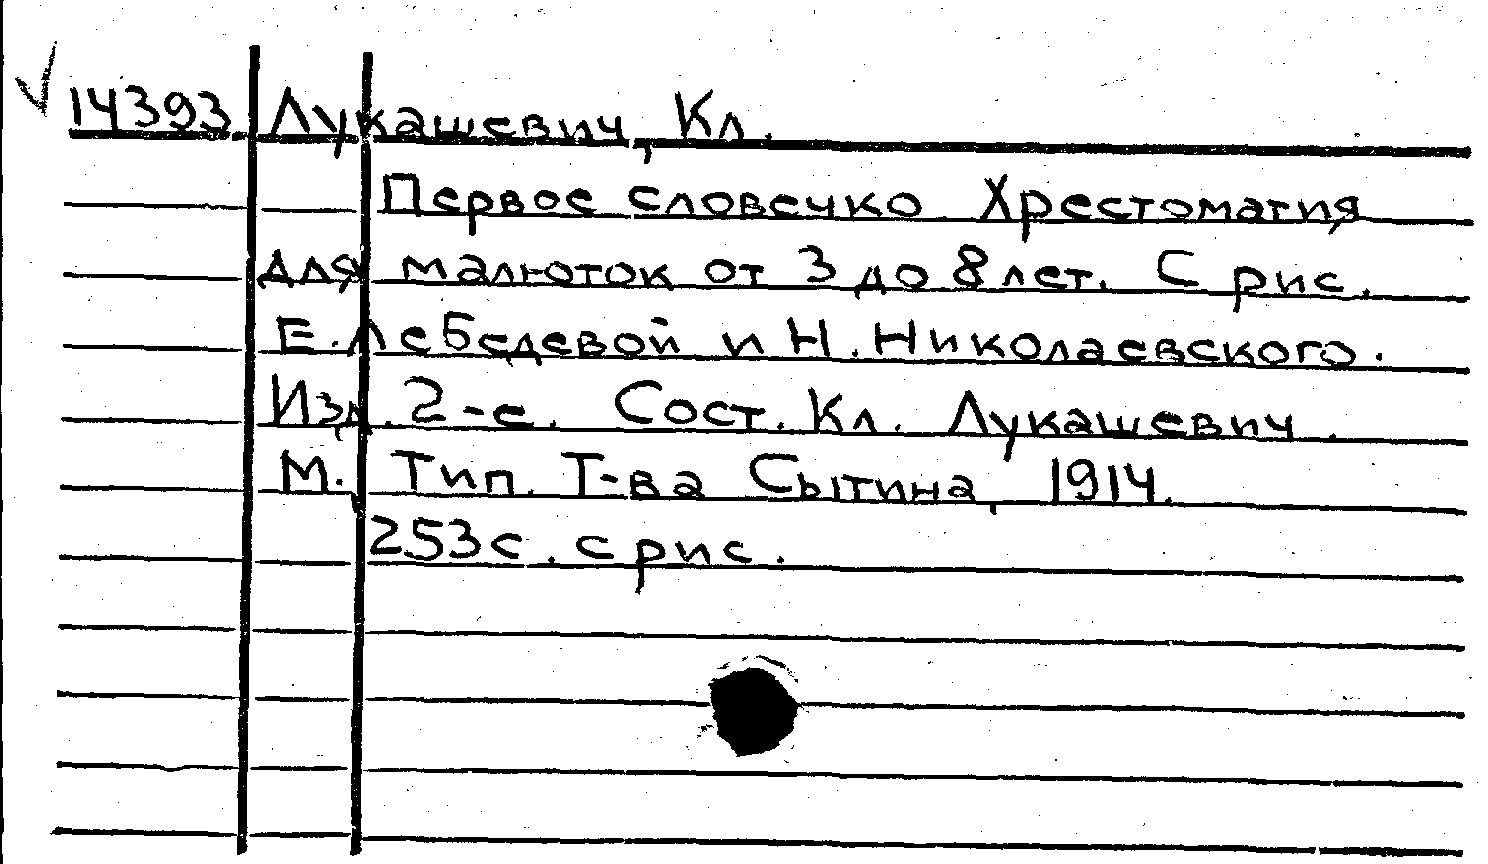 14393 Лукашевич, Кл.
Первое словечко. Хрестоматия
для малюток от 3 до 8 лет. С рис.
Е. Лебедевой и Н. Николаевского.
Изд. 2-е. Сост. Кл. Лукашевич.
М., Тип. Т-ва Сытина, 1914.
253 с. с рис.